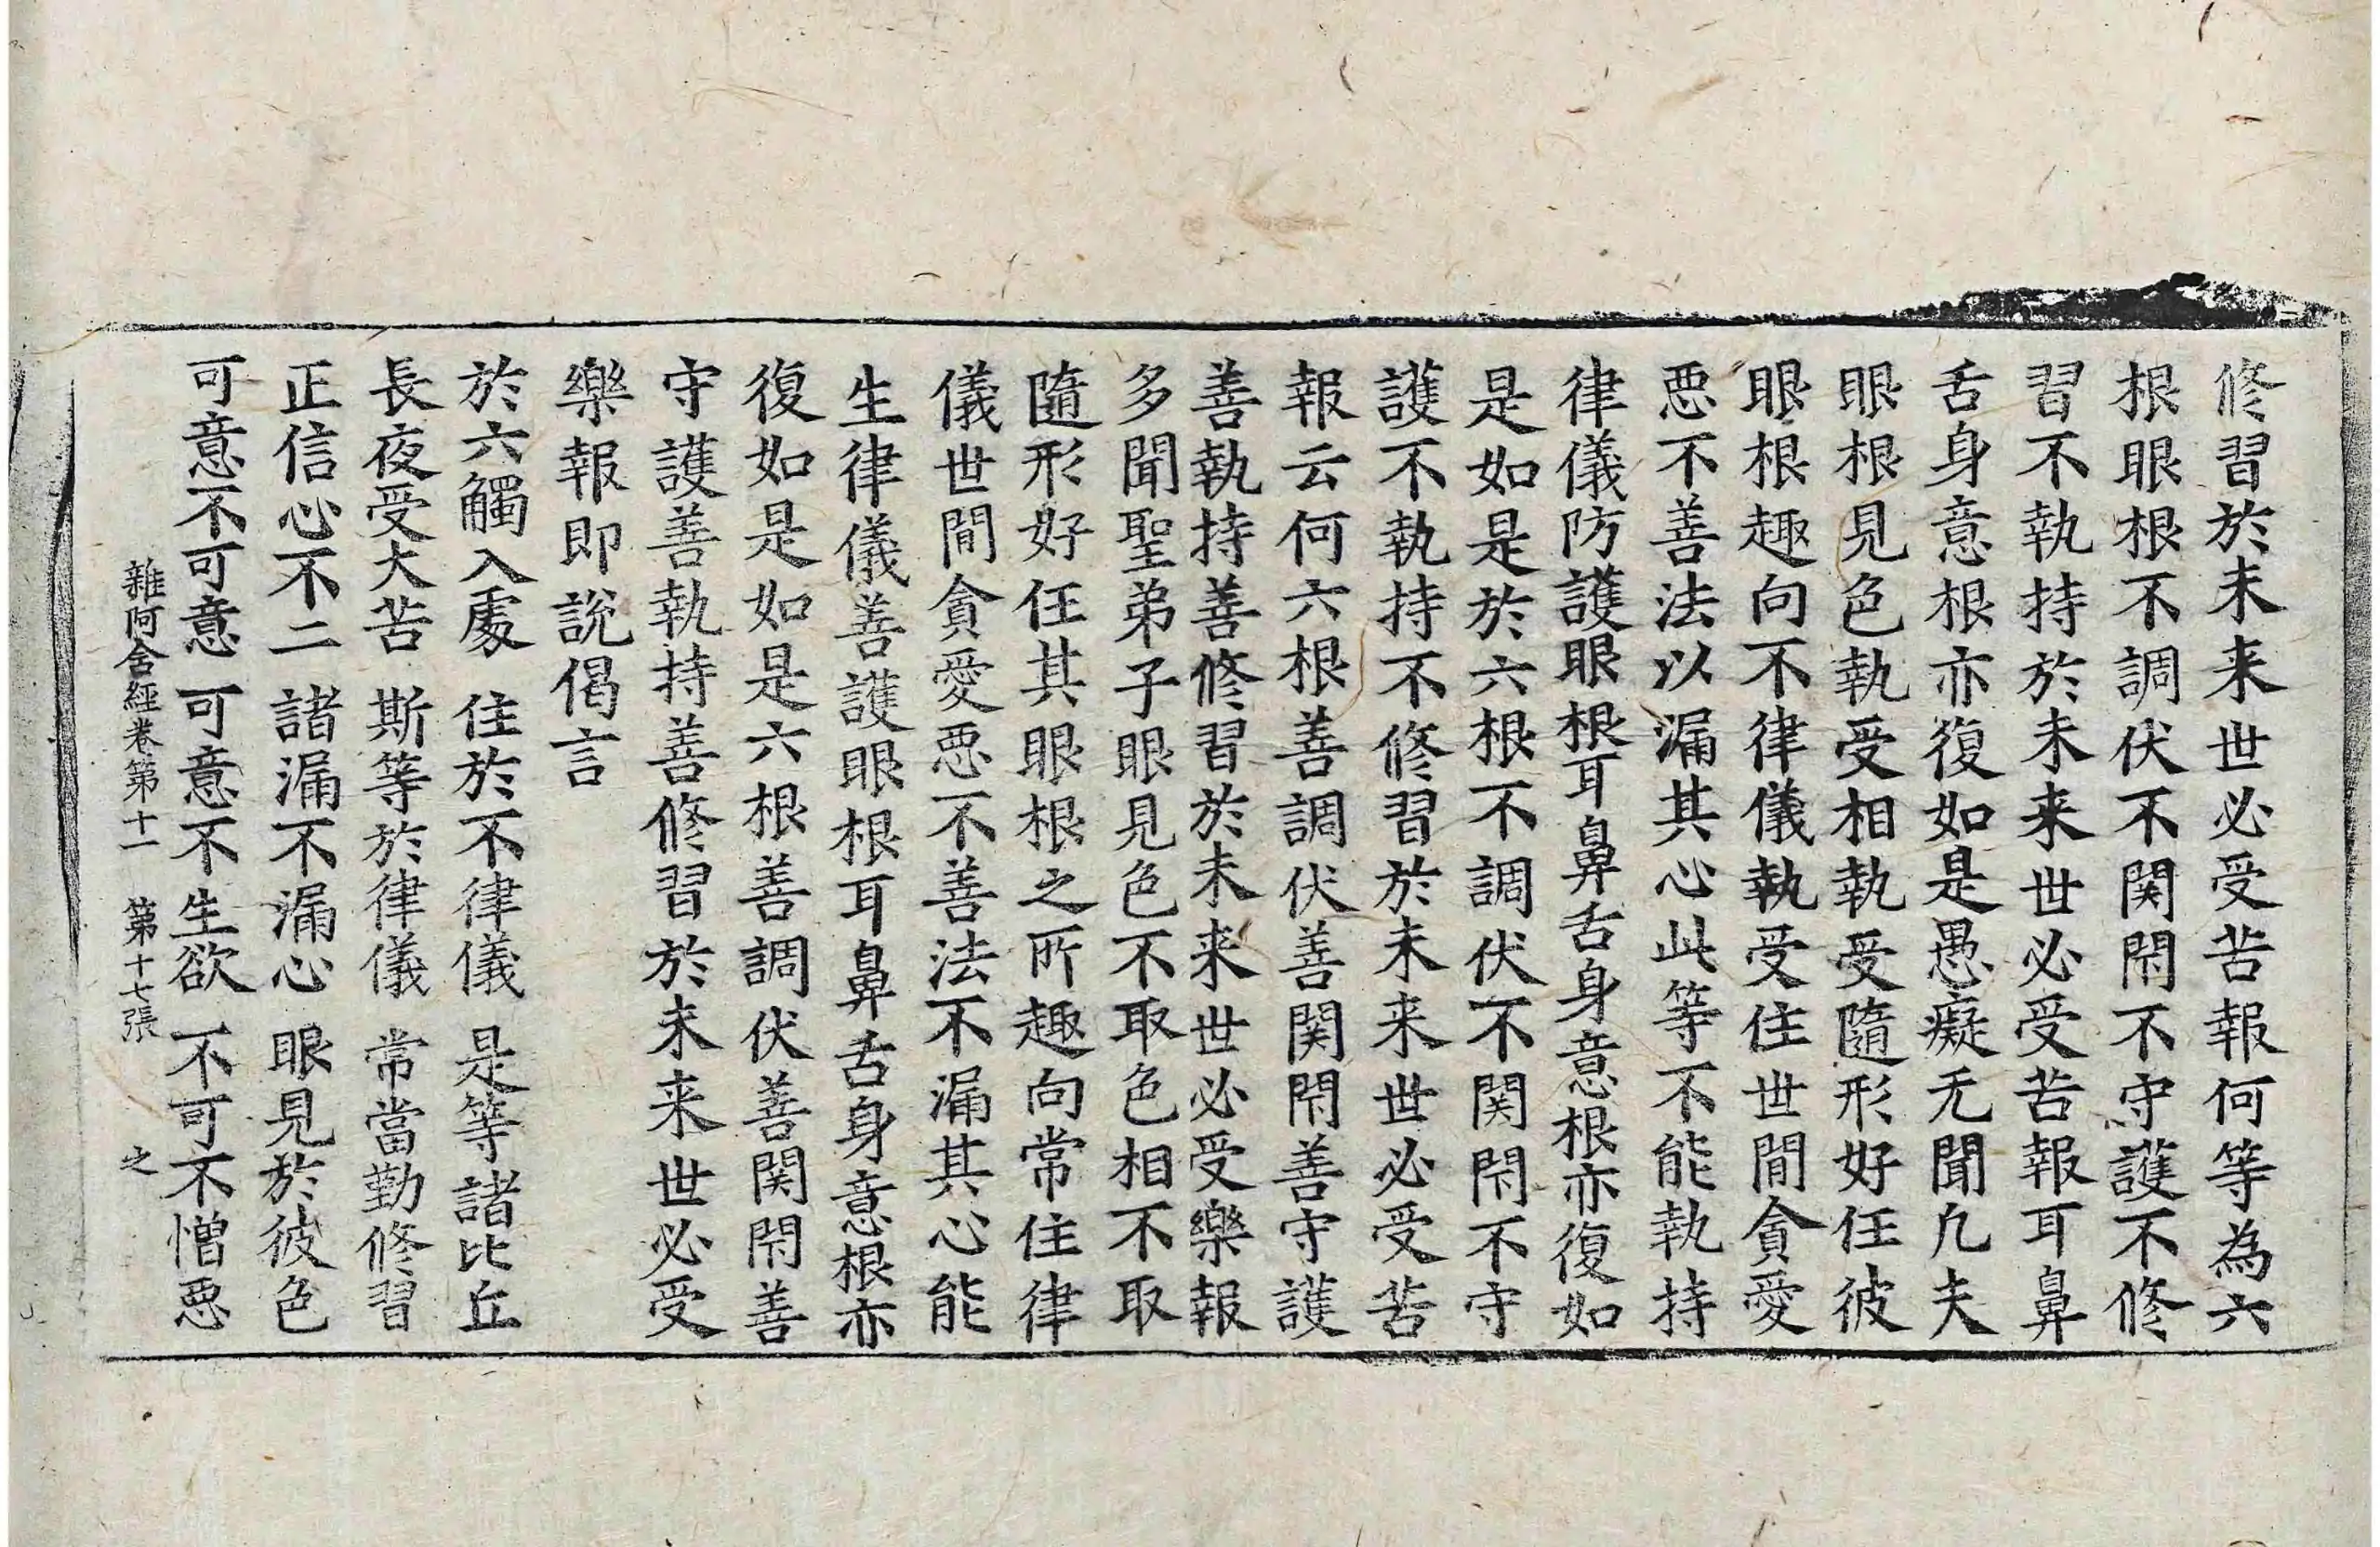 修習於未来世必受苦報何等為六
根眼根不調伏不関閇不守護不修
習不執持於未来世必受苦報耳鼻
舌身意根亦復如是愚癡无聞凡夫
眼根見色執受相執受隨形好任彼
眼根趣向不律儀執受住世間貪愛
惡不善法以漏其心此等不能執持
律儀防護眼根耳鼻舌身意根亦復如
是如是於六根不調伏不関閇不守
護不執持不修習於未来世必受苦
報云何六根善調伏善関閇善守護
善執持善修習於未来世必受樂報
多聞聖弟子眼見色不取色相不取
隨形好任其眼根之所趣向常住律
儀世間貪愛惡不善法不漏其心能
生律儀善護眼根耳鼻舌身意根亦
復如是如是六根善調伏善関閇善
守護善執持善修習於未来世必受
樂報即說偈言
於六觸入處　住於不律儀　是等諸比丘
長夜受大苦　斯等於律儀　常當勤修習
正信心不二　諸漏不漏心　眼見於彼色
可意不可意　可意不生欲　不可不憎惡
雜阿含經卷第十一　第十七張　之